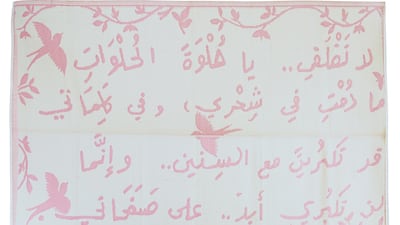 لا تَقْلَقي.. يا حُلْوَةَ الحُلْوَاتِ
ما دُمْتِ في شِعْري، وفي كَلِمَاتي
قد تَكْبُرينَ مع السِنينِ.. وإنَّما
لن تَكْبُري أبداً.. على صَفَحَاتي